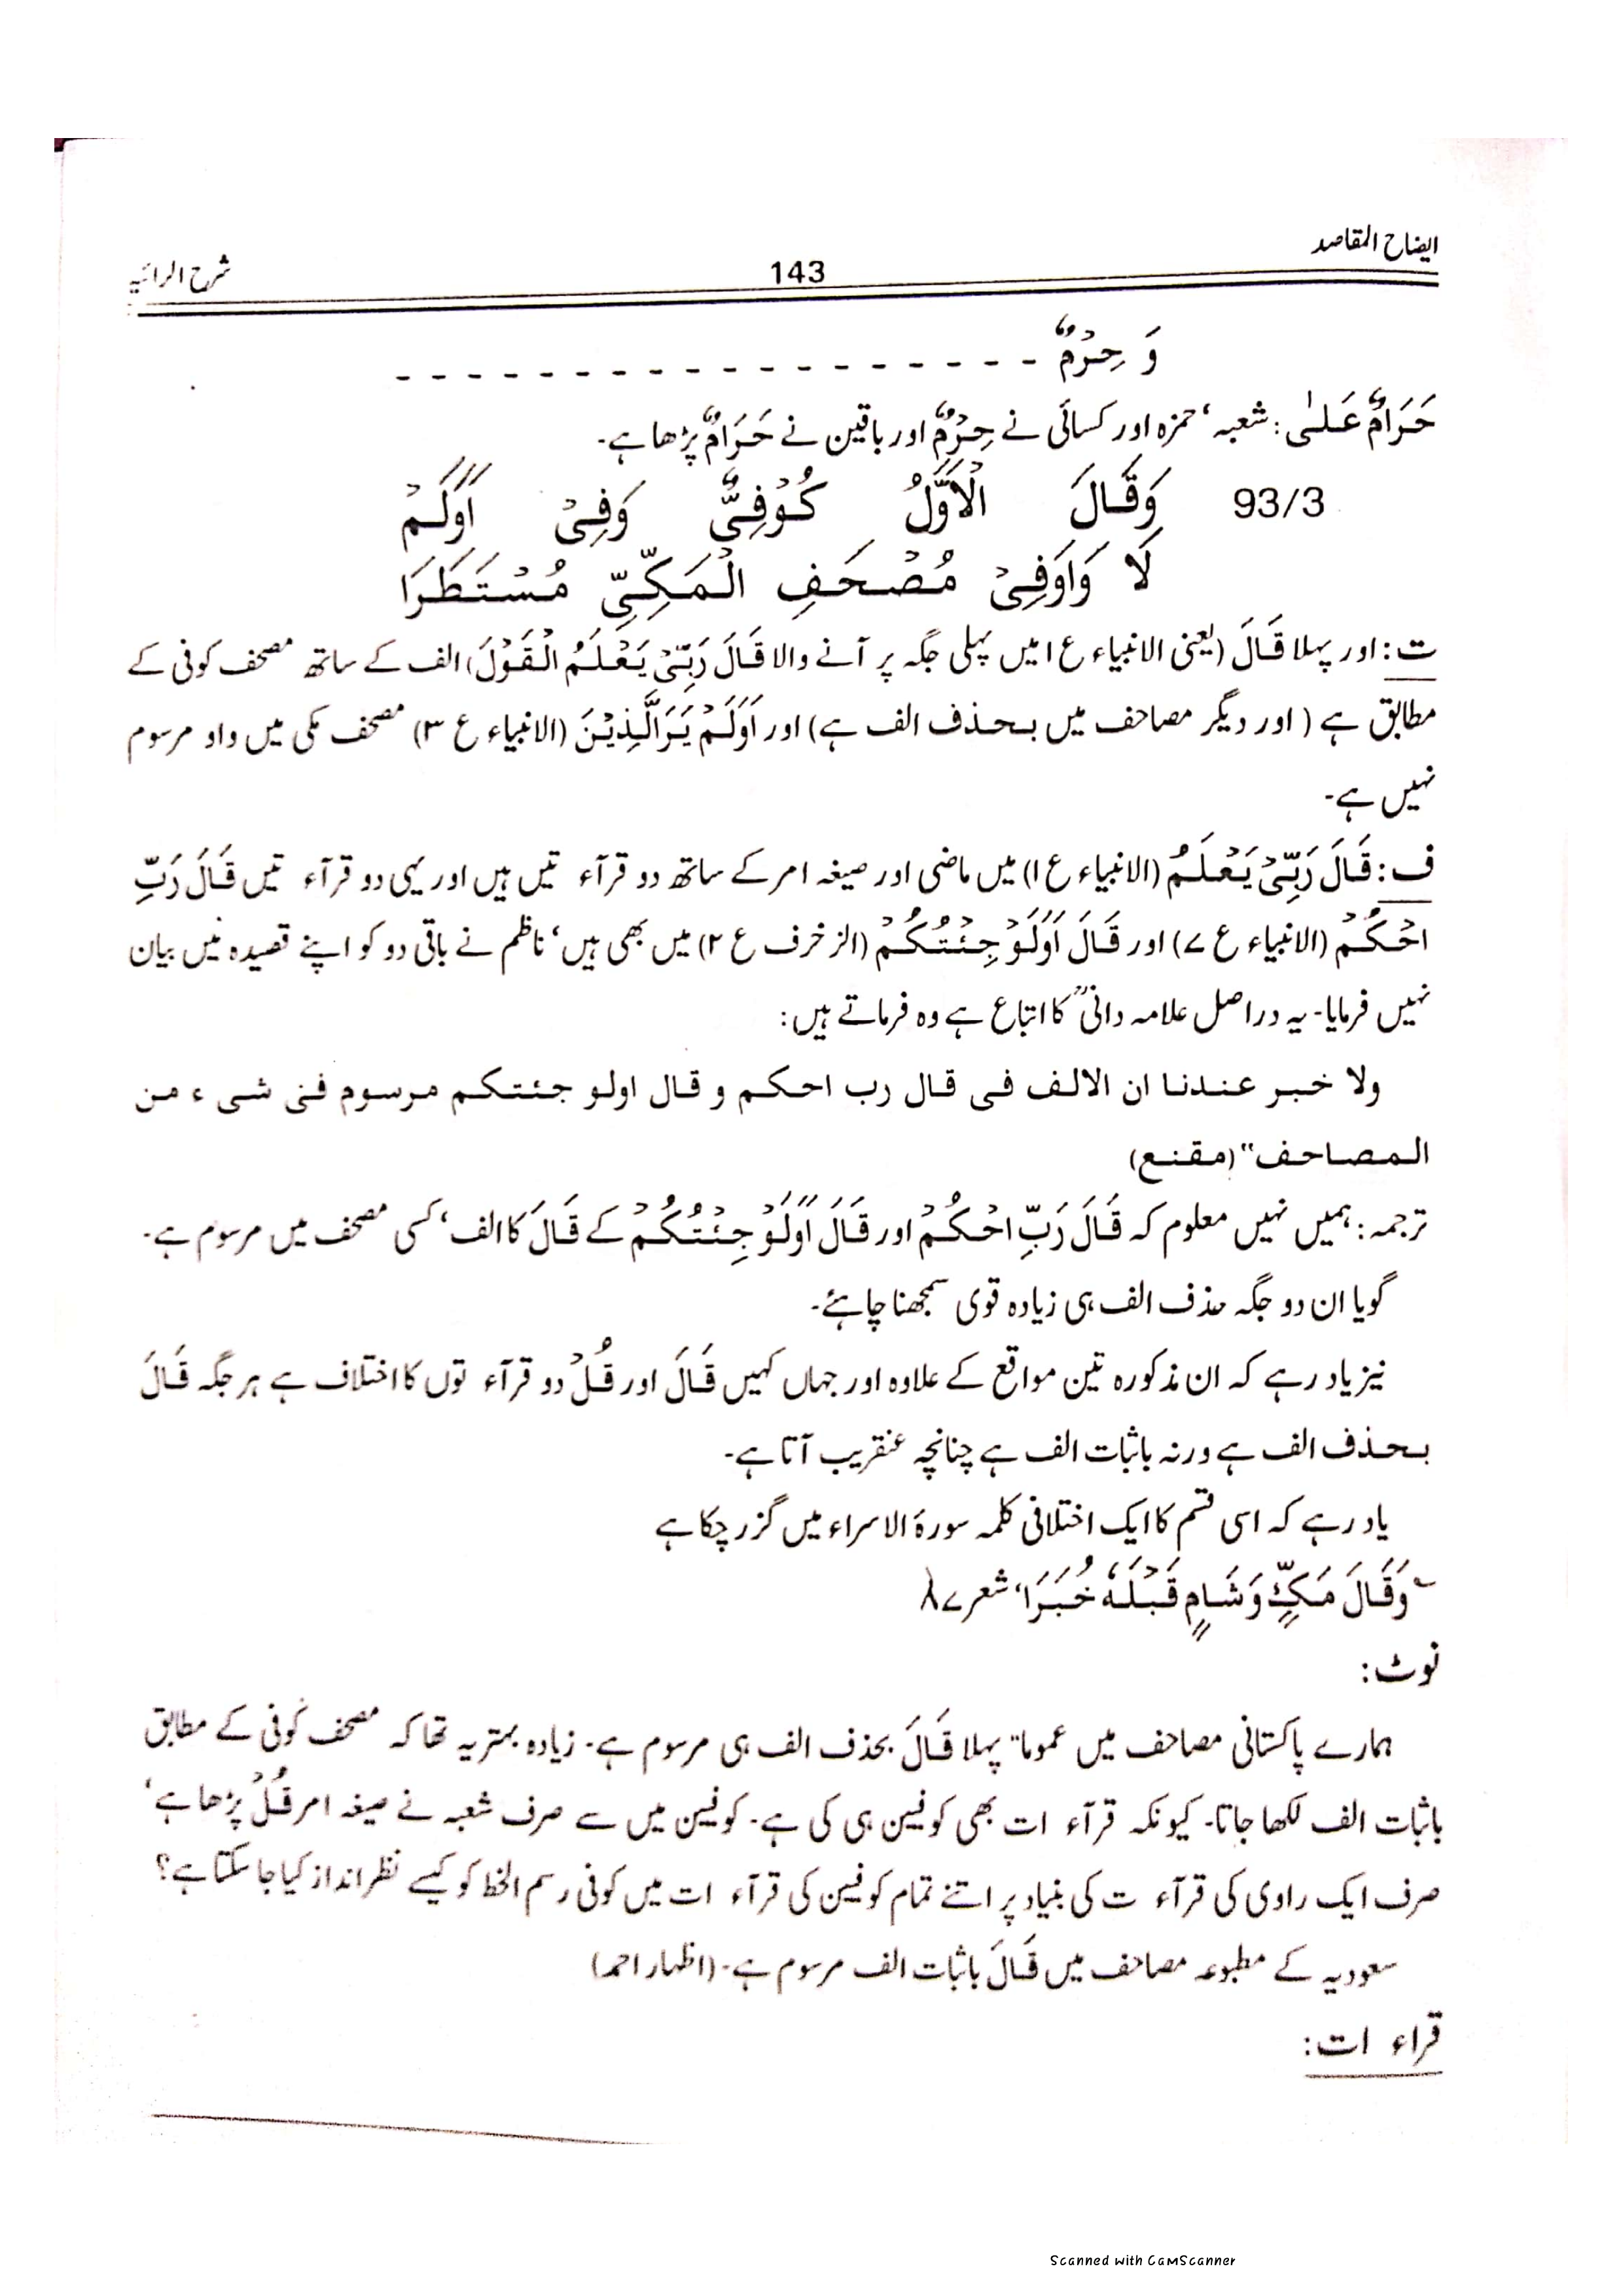 ایضاح المقاصد
143
شرح الرائیہ
وَ حِرْمٌ - - - - - - - - - - - - - - - - - -
حَرَامٌ عَلٰی: شعبہ، حمزہ اور کسائی نے حِرْمٌ اور باقین نے حَرَامٌ پڑھا ہے۔
93/3 وَقَالَ الْاَوَّلُ کُوْفِیٌّ وَفِیْ اَوَلَمْ
لَا وَاوَفِیْ مُصْحَفِ الْمَکِّیِّ مُسْتَطَرَا
ت: اور پہلا قَالَ (یعنی الانبیاء ع ۱ میں پہلی جگہ پر آنے والا قَالَ رَبِّیْ یَعْلَمُ الْقَوْلَ) الف کے ساتھ مصحف کوفی کے
مطابق ہے (اور دیگر مصاحف میں بحذف الف ہے) اور اَوَلَمْ یَرَالَّذِیْنَ (الانبیاء ع ۳) مصحف مکی میں واو مرسوم
نہیں ہے۔
ف: قَالَ رَبِّیْ یَعْلَمُ (الانبیاء ع ۱) میں ماضی اور صیغہ امر کے ساتھ دو قرآء تیں ہیں اور یہی دو قرآء تیں قَالَ رَبِّ
احْکُمْ (الانبیاء ع ۷) اور قَالَ اَوَلَوْ جِئْتُکُمْ (الزخرف ع ۲) میں بھی ہیں، ناظم نے باقی دو کو اپنے قصیدہ میں بیان
نہیں فرمایا۔ یہ دراصل علامہ دانیؒ کا اتباع ہے وہ فرماتے ہیں:
ولا خبر عندنا ان الالف فی قال رب احکم و قال اولو جئتکم مرسوم فنی شیء من
المصاحف" (مقنع)
ترجمہ: ہمیں نہیں معلوم کہ قَالَ رَبِّ احْکُمْ اور قَالَ اَوَلَوْ جِئْتُکُمْ کے قَالَ کا الف، کسی مصحف میں مرسوم ہے۔
گویا ان دو جگہ حذف الف ہی زیادہ قوی سمجھنا چاہئے۔
نیز یاد رہے کہ ان مذکورہ تین مواقع کے علاوہ اور جہاں کہیں قَالَ اور قُلْ دو قرآء توں کا اختلاف ہے ہر جگہ قَالَ
بحذف الف ہے ورنہ باثبات الف ہے چنانچہ عنقریب آتا ہے۔
یاد رہے کہ اسی قسم کا ایک اختلافی کلمہ سورۃ الاسراء میں گزر چکا ہے
؎ وَقَالَ مَکٍّ وَشَامٍ قَبْلَهٗ خُبَرَا، شعر ۸۷
نوٹ:
ہمارے پاکستانی مصاحف میں عموماً پہلا قَالَ بحذف الف ہی مرسوم ہے۔ زیادہ بہتر یہ تھا کہ مصحف کوفی کے مطابق
باثبات الف لکھا جاتا۔ کیونکہ قرآء ات بھی کوفیین ہی کی ہے۔ کوفیین میں سے صرف شعبہ نے صیغہ امر قُلْ پڑھا ہے،
صرف ایک راوی کی قرآء ت کی بنیاد پر اتنے تمام کوفیین کی قرآء ات میں کوفی رسم الخط کو کیسے نظر انداز کیا جا سکتا ہے؟
سعودیہ کے مطبوعہ مصاحف میں قَالَ باثبات الف مرسوم ہے۔ (اظہار احمد)
قراء ات:
Scanned with CamScanner